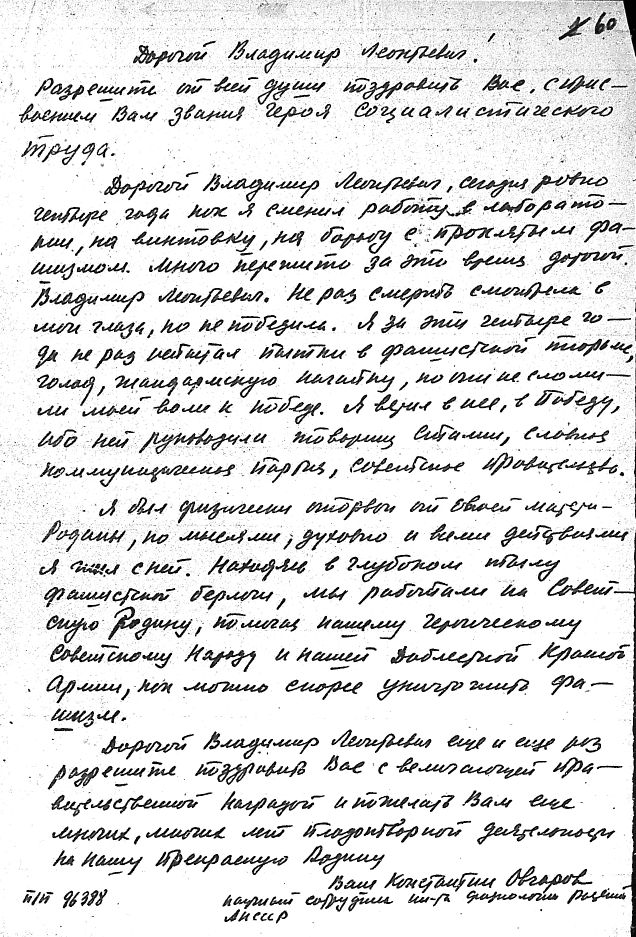 60
Дорогой Владимир Леонтьевич!
Разрешите от всей души поздравить Вас, с прис-
воением Вам звания Героя Социалистического
труда.
Дорогой Владимир Леонтьевич, сегодня ровно
четыре года как я сменил работу в лаборато-
рии, на винтовку, на борьбу с проклятым фа-
шизмом. Много пережито за это время дорогой
Владимир Леонтьевич. Не раз смерть смотрела в
мои глаза, но не победила. Я за эти четыре го-
да не раз испытал пытки в фашистской тюрьме,
голод, жандармскую нагайку, но они не сломи-
ли моей воли к победе. Я верил в нее, в Победу,
ибо ней руководили товарищ Сталин, славная
коммунистическая партия, советское правительство.
Я был физически оторван от своей матери-
Родины, но мыслями, духовно и всеми действиями
я жил с ней. Находясь в глубоком тылу
фашистской берлоги, мы работали на Совет-
скую Родину, помогая нашему героическому
Советскому Народу и нашей Доблестной Красной
Армии, как можно скорее уничтожить фа-
шизм.
Дорогой Владимир Леонтьевич еще и еще раз
разрешите поздравить Вас с величающей пра-
вительственной наградой и пожелать Вам еще
многих, многих лет плодотворной деятельности
на нашу прекрасную Родину
Ваш Константин Овчаров
п/п 96388
научный сотрудник ин-та физиологии растений
АНСССР